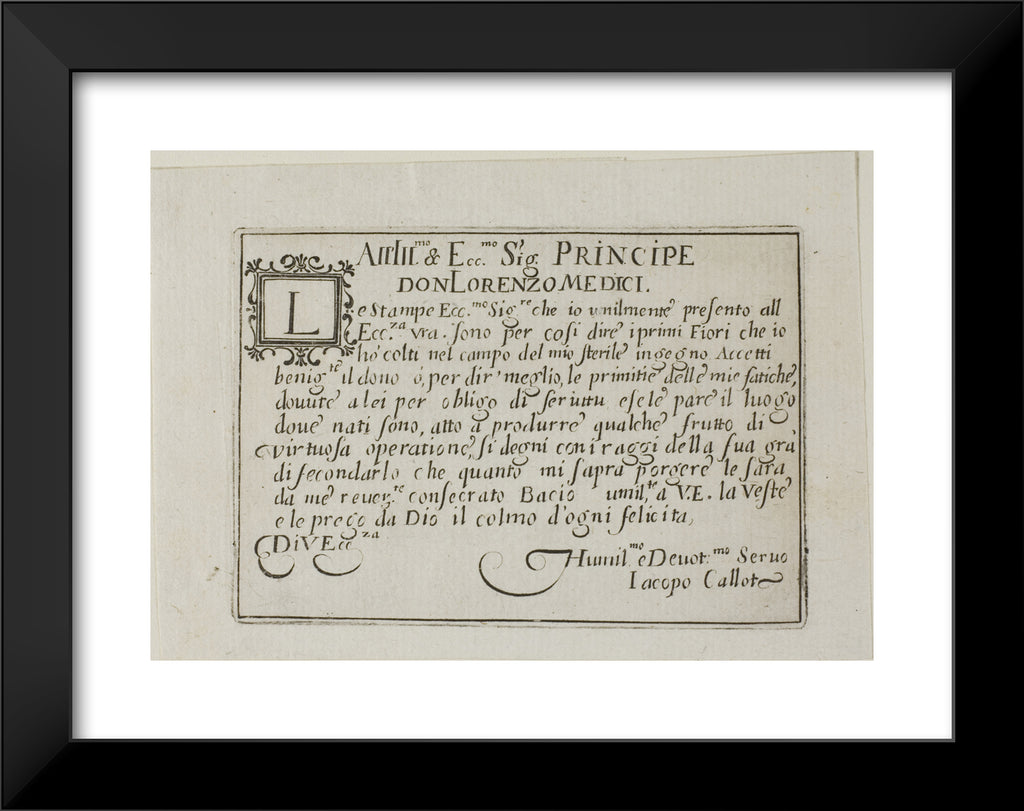 All Ill.mo & Ecc.mo Sig. PRINCIPE
DON LORENZO MEDICI.
Le Stampe Ecc.mo Sig.re che io vmilmente presento all
Ecc.za vra. sono per cosi dire i primi Fiori che io
hò colti nel campo del mio sterile ingegno. Accetti
benig.te il dono ò, per dir meglio, le primitie delle mie fatiche,
douute a lei per obligo di seruitu e se le pare il luogo
doue nati sono, atto à produrre qualche frutto di
virtuosa operatione, si degni con i raggi della sua grà
di fecondarlo che quanto mi saprà porgere le sarà
da me reuer.te consecrato Bacio umil.te a V.E. la Veste
e le prego da Dio il colmo d'ogni felicita,
Di V Ecc.za
Humil.mo e Deuot.mo Seruo
Iacopo Callot